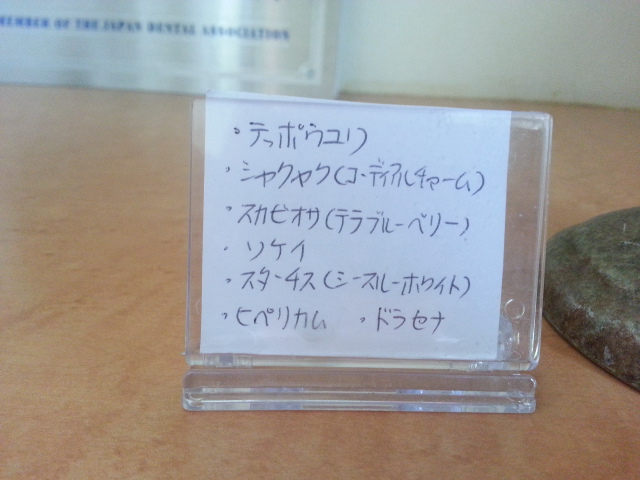 MEMBER OF THE JAPAN DENTAL ASSOCIATION
・テッポウユリ
・シャクヤク(コーディアルチャーム)
・スカビオサ(テラブルーベリー)
・ソケイ
・スターチス(シースルーホワイト)
・ヒペリカム ・ドラセナ